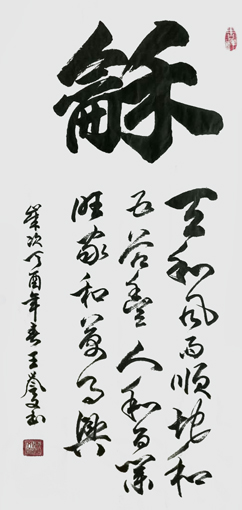 龢
天和风雨顺地和
五谷丰人和百业
旺家和万事兴
岁次丁酉年春王學文书